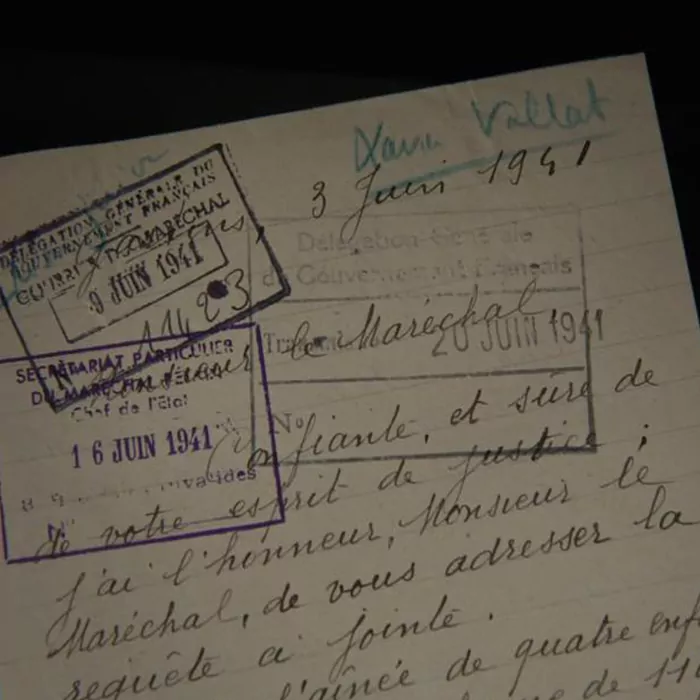 Xavier Vallat
3 Juin 1941
DÉLÉGATION GÉNÉRALE DU
GOUVERNEMENT FRANÇAIS
CABINET DU MARÉCHAL
9 JUIN 1941
11423
Délégation Générale
du Gouvernement Français
20 JUIN 1941
No
SECRÉTARIAT PARTICULIER
DU MARÉCHAL PÉTAIN
Chef de l'État
16 JUIN 1941
Invalides
Monsieur le Maréchal,
Confiante, et sûre de
de votre esprit de justice ;
j'ai l'honneur, Monsieur le
Maréchal, de vous adresser la
requête ci jointe.
l'aînée de quatre enf
de 11